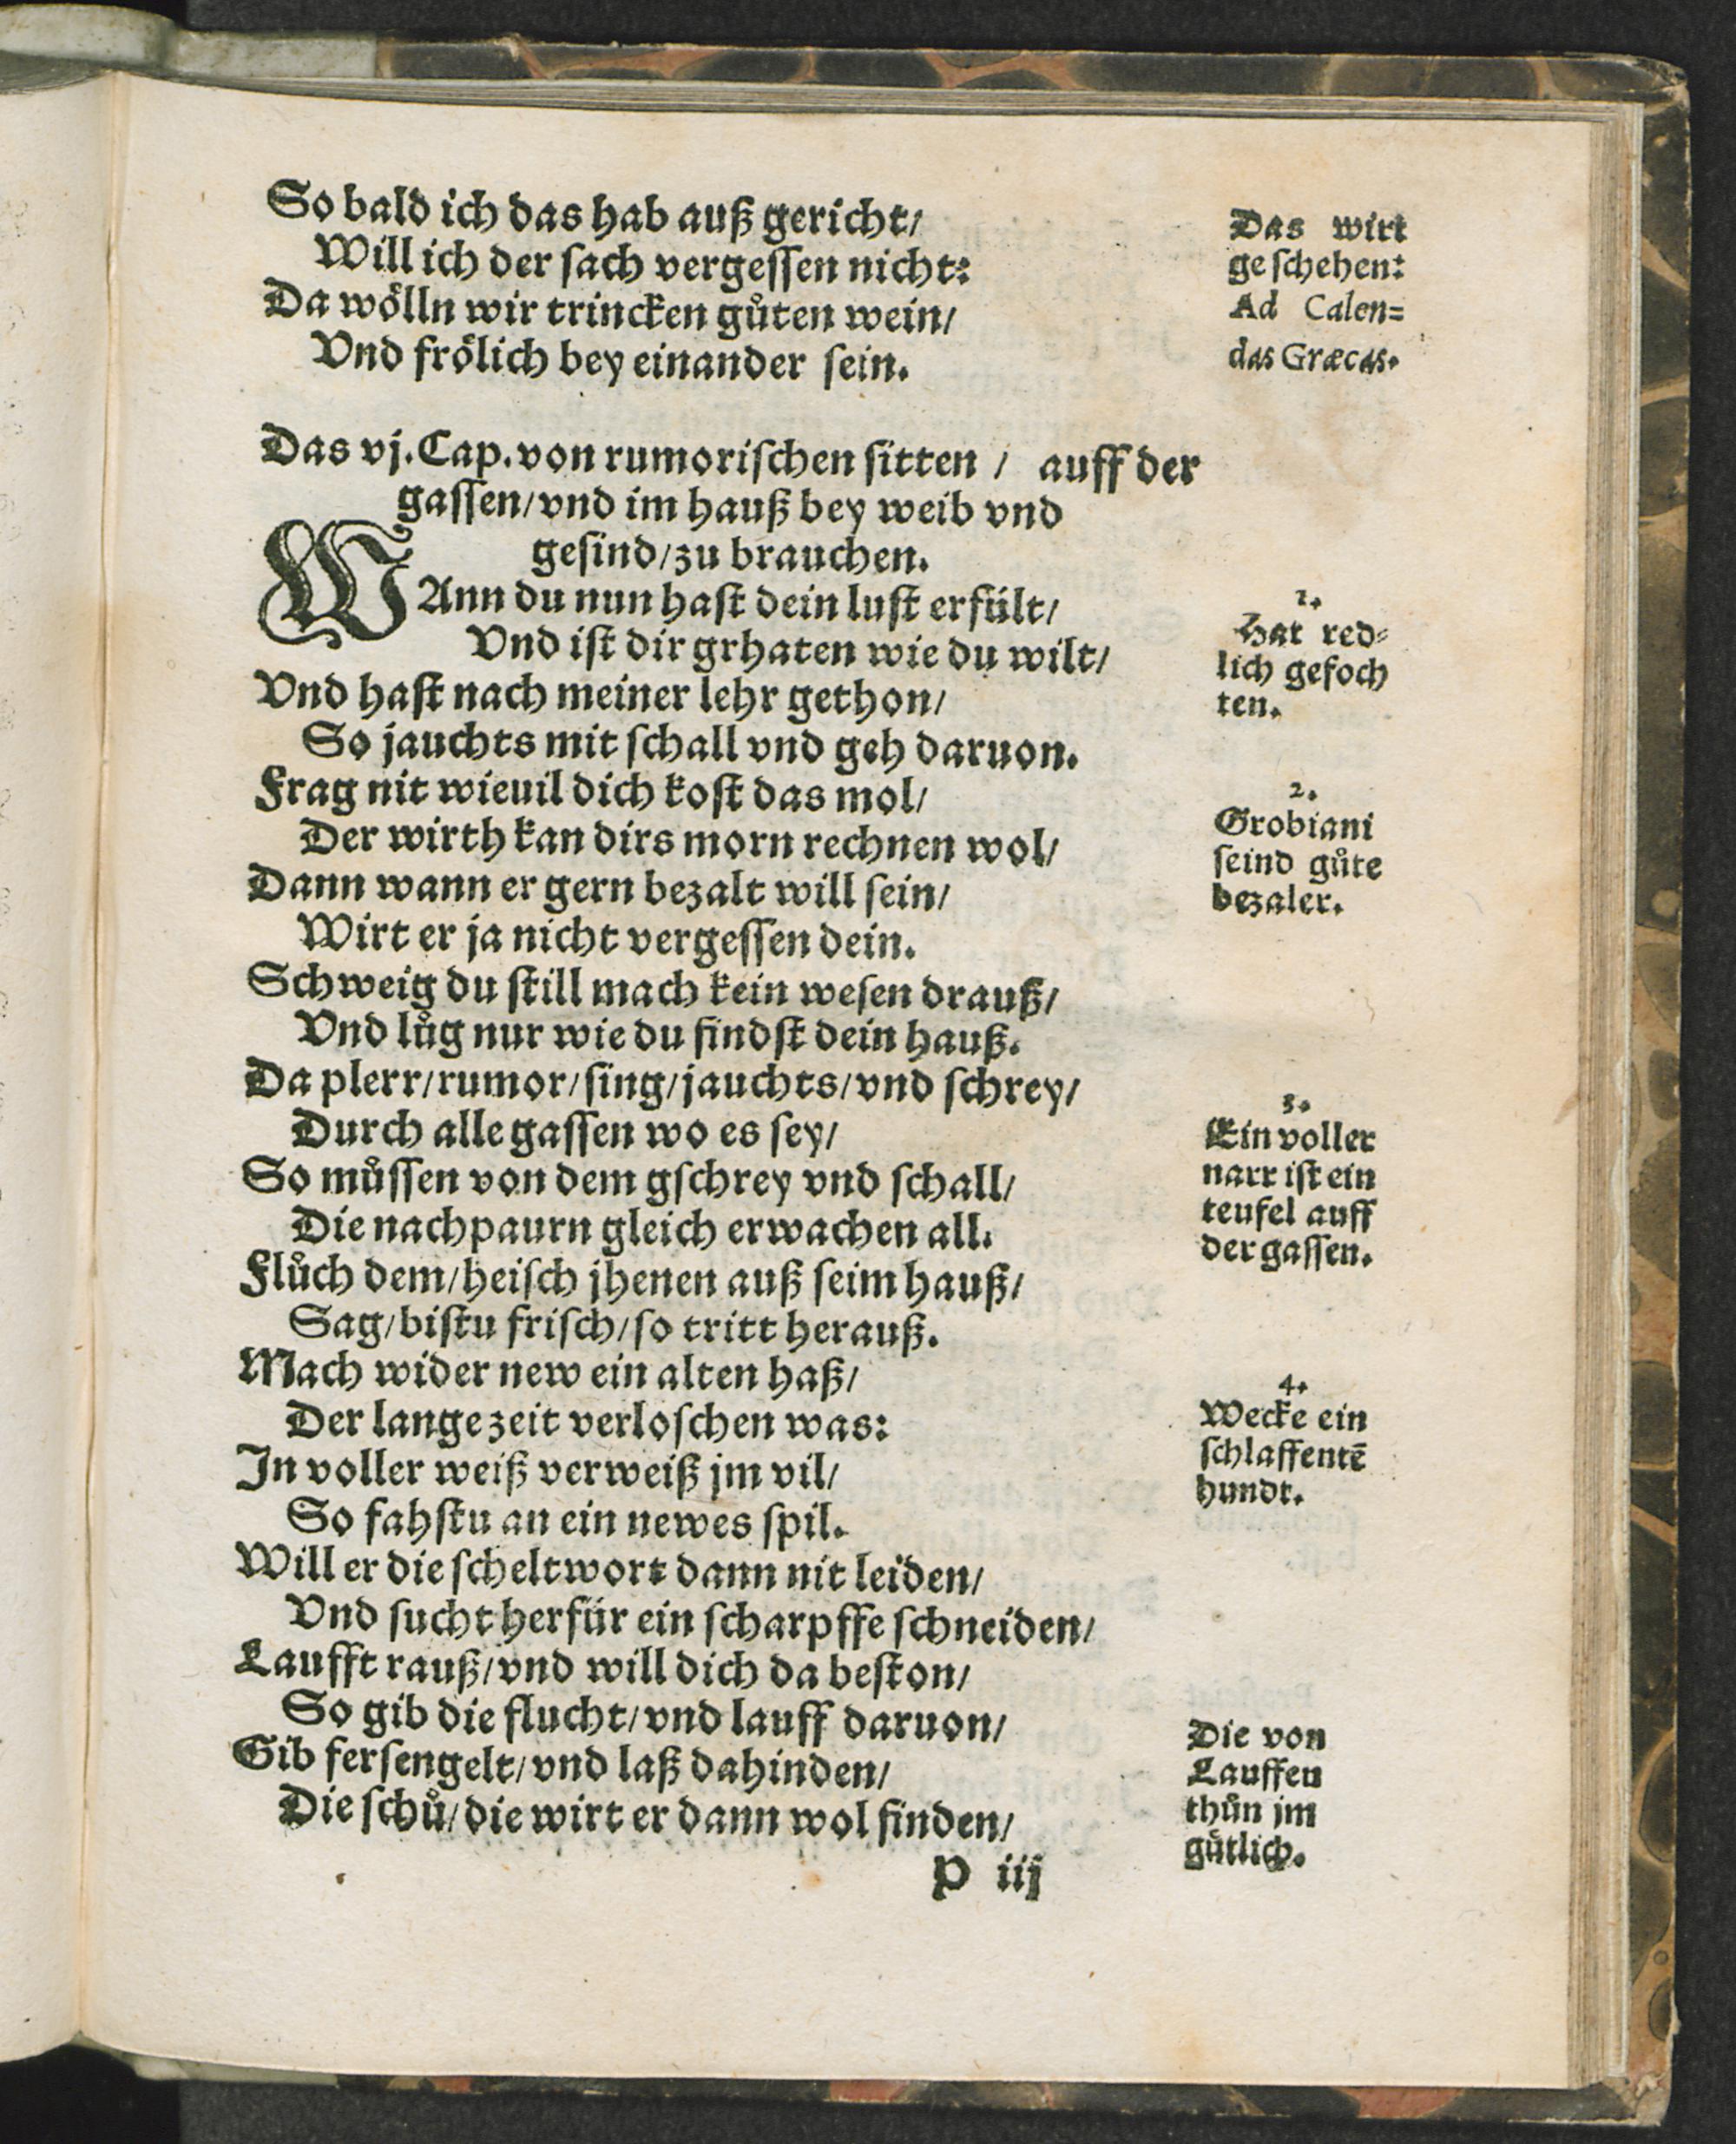 So bald ich das hab auß gericht/
Will ich der sach vergessen nicht:
Da wölln wir trincken gůten wein/
Vnd frölich bey einander sein.
Das wirt
geschehen:
Ad Calen=
das Græcas.
Das vj. Cap. von rumorischen sitten / auff der
gassen/vnd im hauß bey weib vnd
gesind/zu brauchen.
WAnn du nun hast dein lust erfült/
Vnd ist dir grhaten wie du wilt/
Vnd hast nach meiner lehr gethon/
So jauchts mit schall vnd geh daruon.
Frag nit wieuil dich kost das mol/
Der wirth kan dirs morn rechnen wol/
Dann wann er gern bezalt will sein/
Wirt er ja nicht vergessen dein.
Schweig du still mach kein wesen drauß/
Vnd lůg nur wie du findst dein hauß.
Da plerr/rumor/sing/jauchts/vnd schrey/
Durch alle gassen wo es sey/
So můssen von dem gschrey vnd schall/
Die nachpaurn gleich erwachen all.
Flůch dem/heisch jhenen auß seim hauß/
Sag/bistu frisch/so tritt herauß.
Mach wider new ein alten haß/
Der lange zeit verloschen was:
In voller weiß verweiß jm vil/
So fahstu an ein newes spil.
Will er die scheltwort dann nit leiden/
Vnd sucht herfür ein scharpffe schneiden/
Laufft rauß/vnd will dich da beston/
So gib die flucht/vnd lauff daruon/
Gib fersengelt/vnd laß dahinden/
Die schů/die wirt er dann wol finden/
1.
Hat red=
lich gefoch
ten.
2.
Grobiani
seind gůte
bezaler.
3.
Ein voller
narr ist ein
teufel auff
der gassen.
4.
Wecke ein
schlaffentē
hundt.
Die von
Lauffen
thůn jm
gůtlich.
P iij